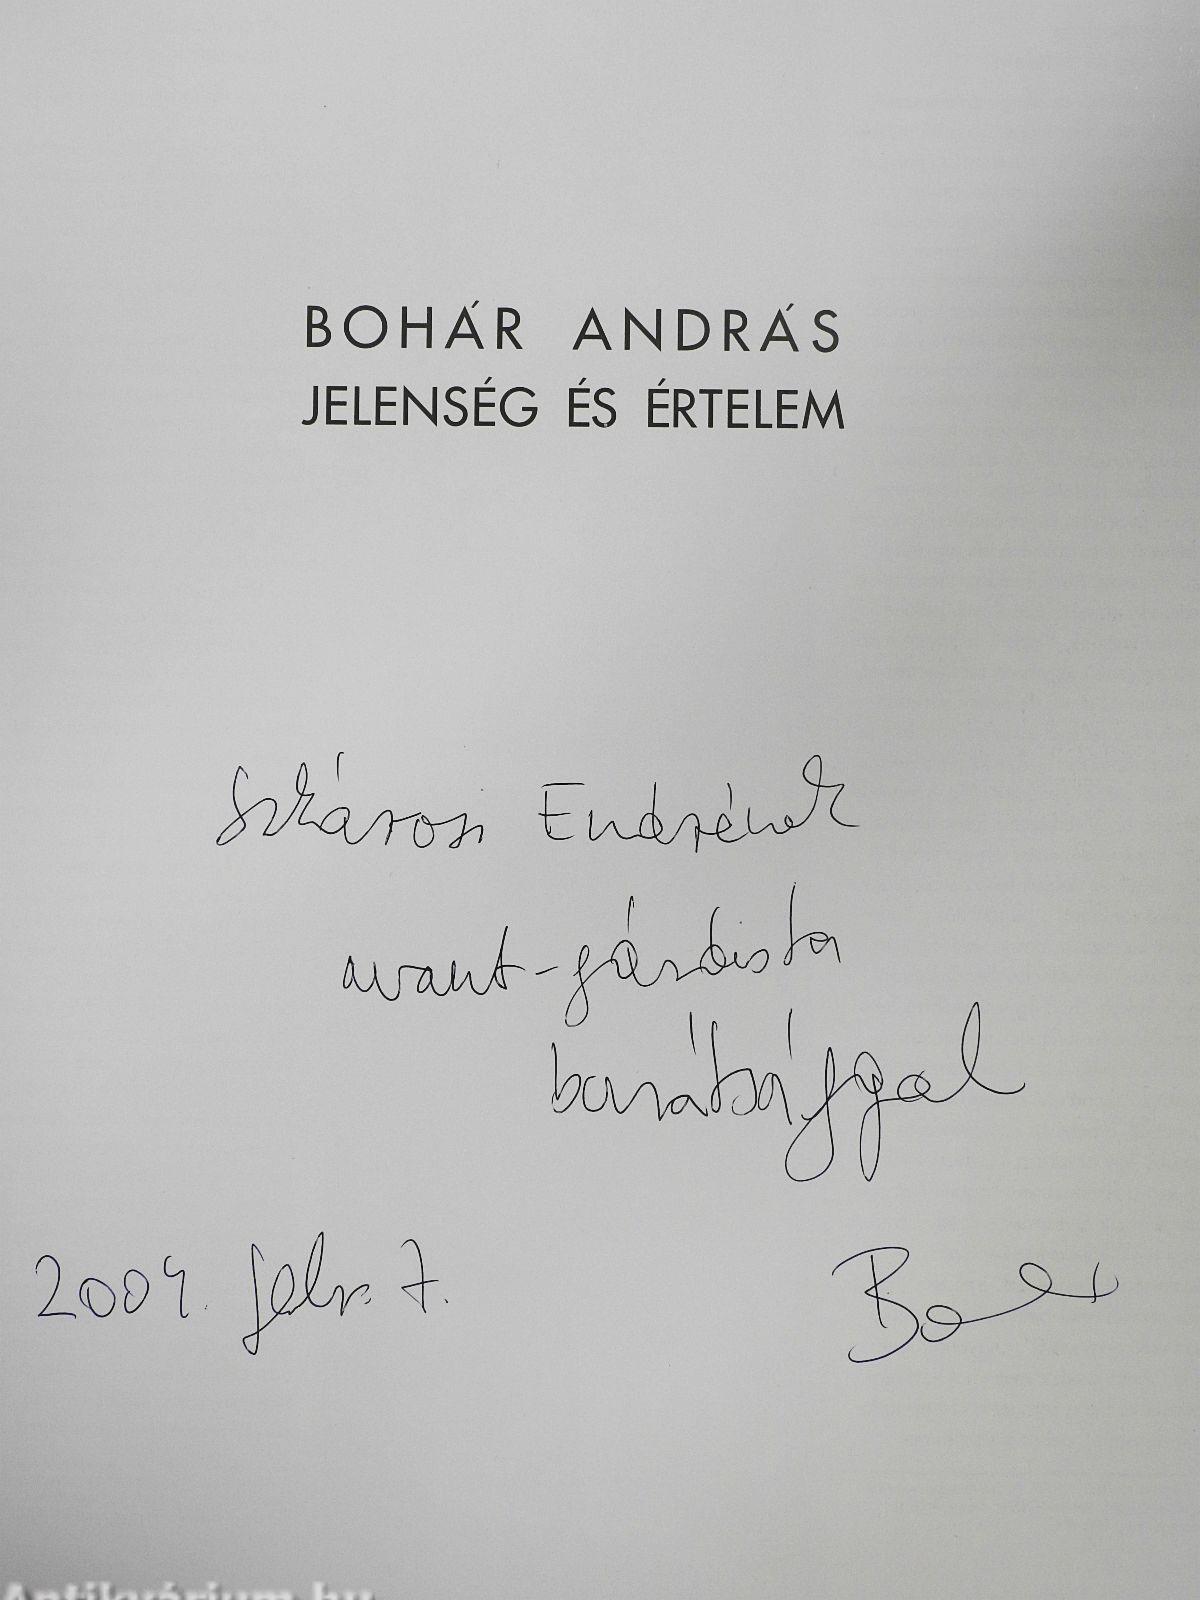 BOHÁR ANDRÁS
JELENSÉG ÉS ÉRTELEM
Szkárosi Endrének
avant-gárdista
barátsággal
2004. febr. 7.
Antikvárium.hu